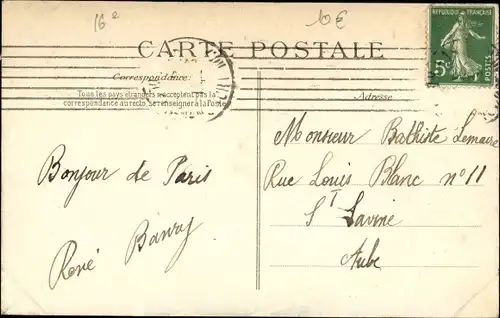 16e
10 €
RÉPUBLIQUE FRANÇAISE
5c
POSTES
CARTE POSTALE
Correspondance:
Tous les pays étrangers n'acceptent pas la
correspondance au recto, se renseigner à la Poste
Adresse
Bonjour de Paris
René
Monsieur Bathiste Lemaire
Rue Louis Blanc n° 11
St Savine
Aube